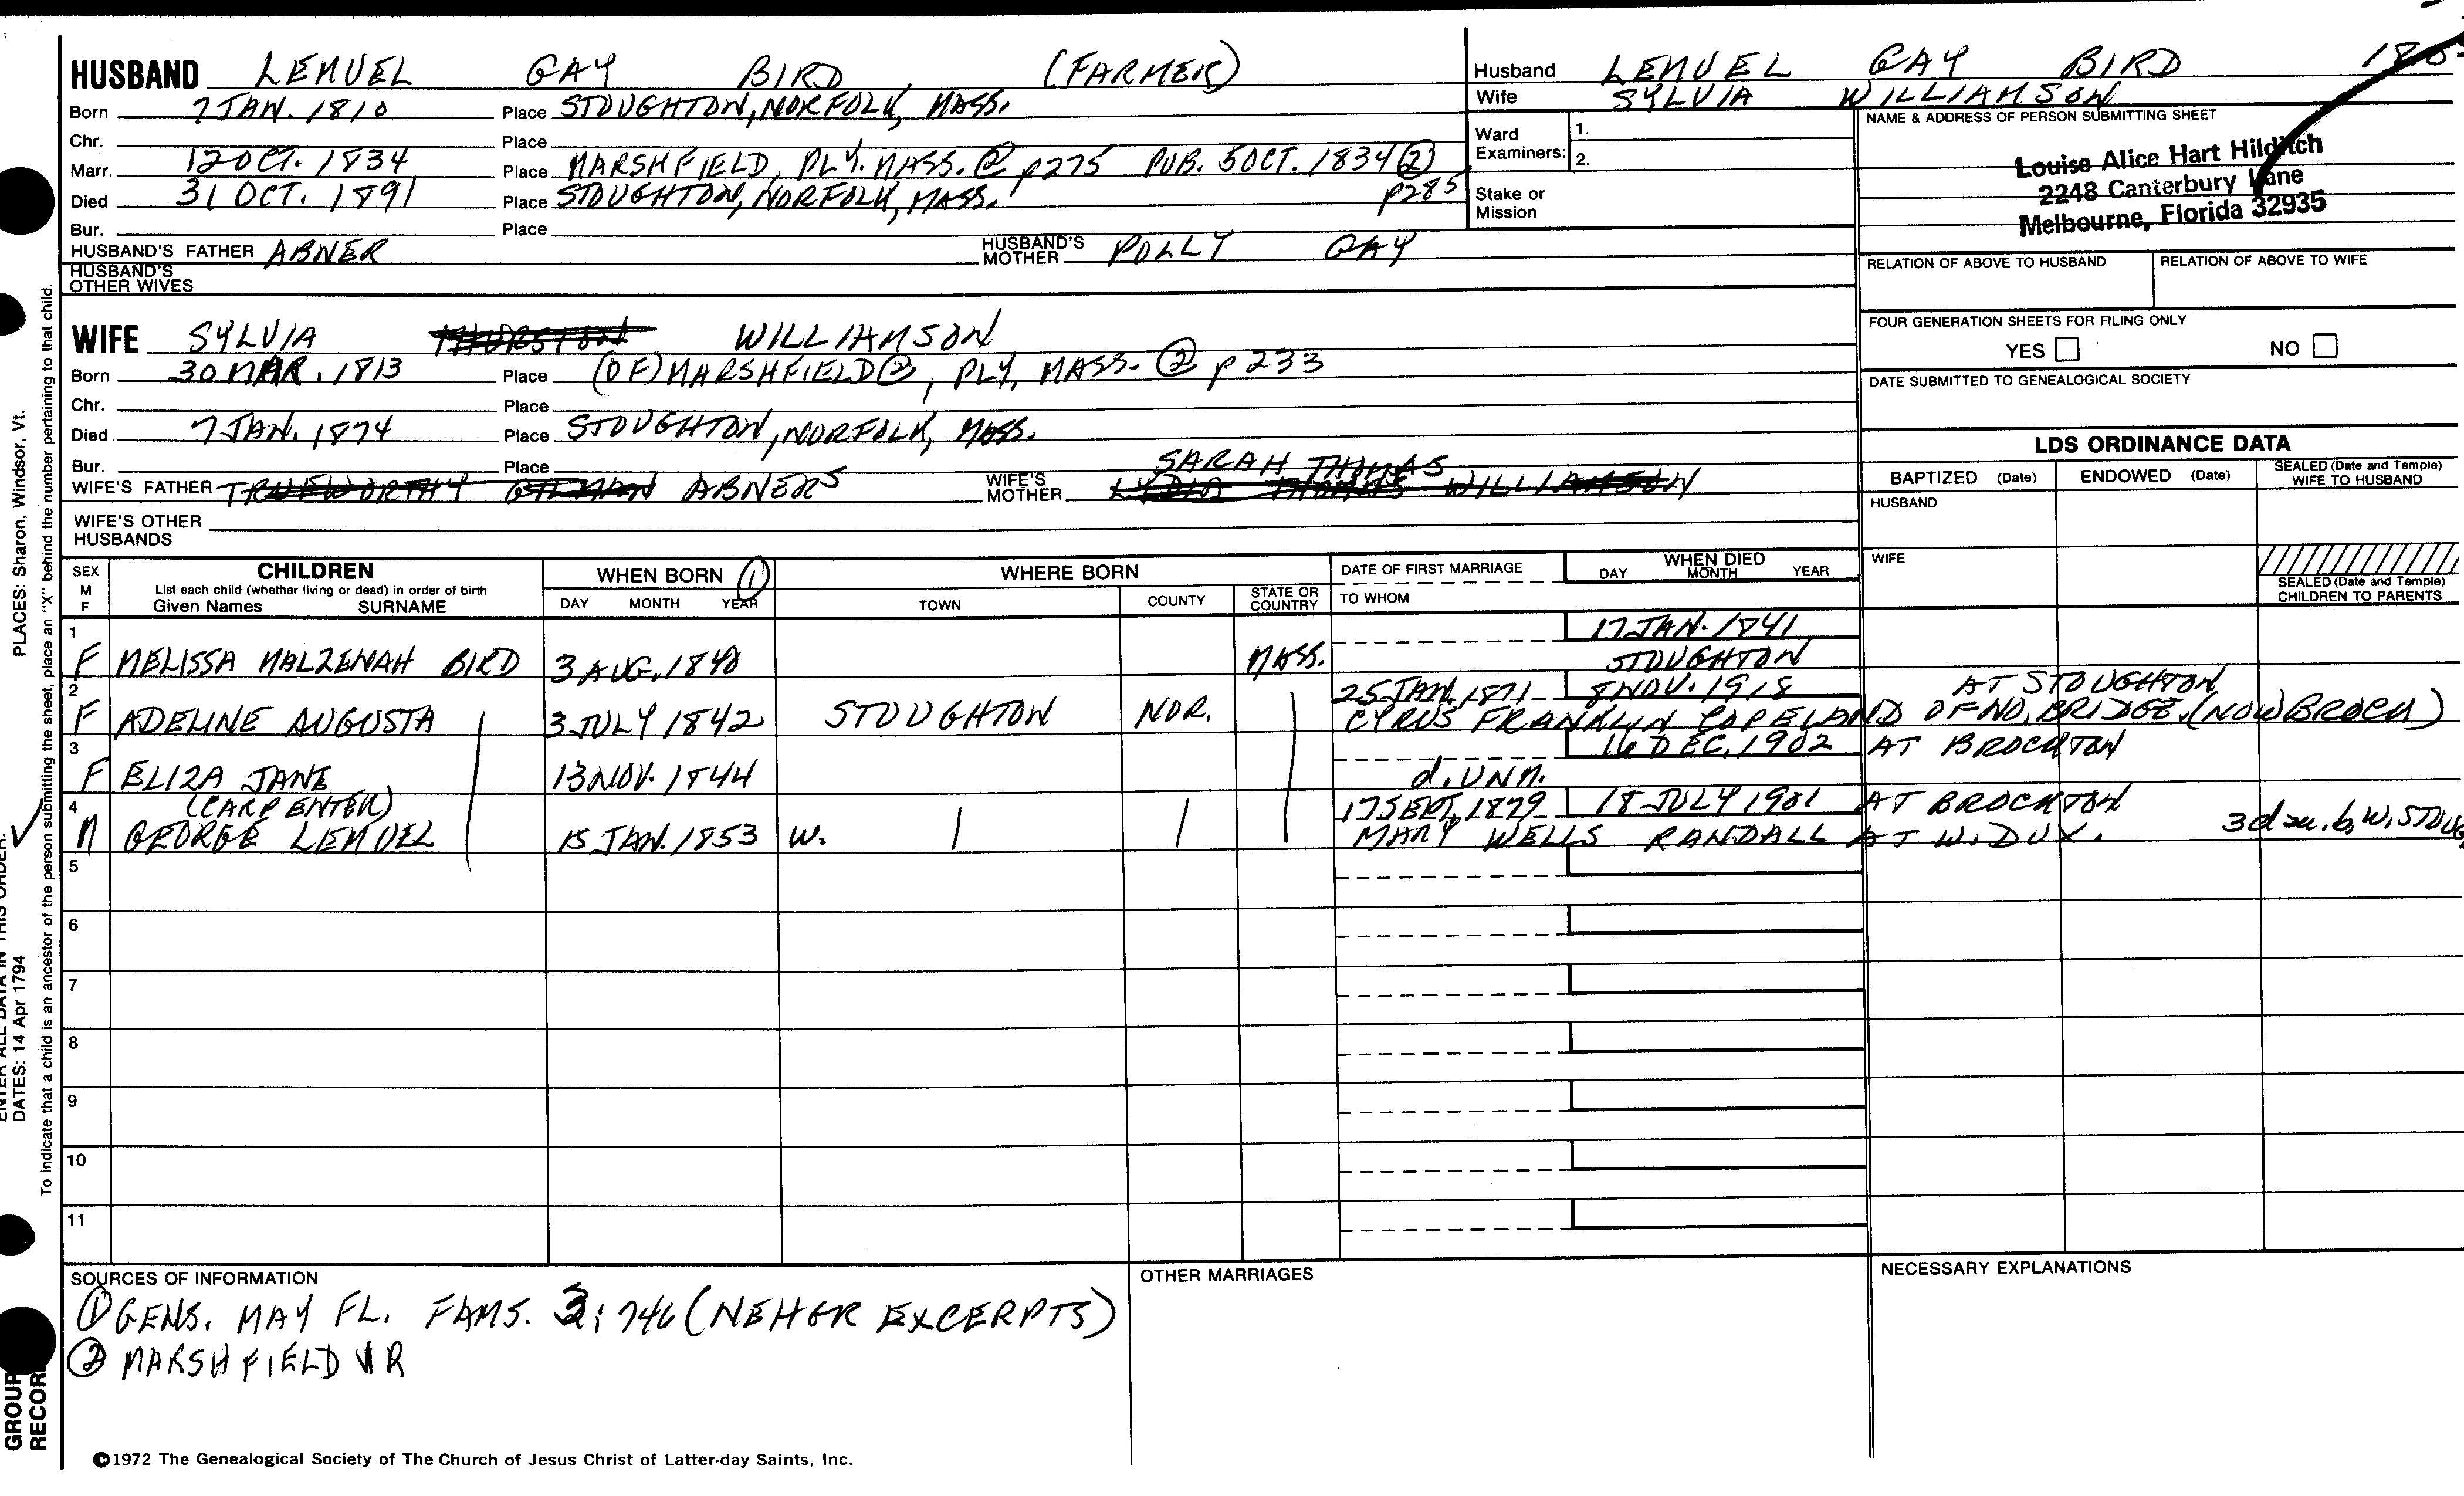 HUSBAND LEMUEL GAY BIRD (FARMER)
Born 7 JAN. 1810 Place STOUGHTON, NORFOLK, MASS.
Chr. Place
Marr. 12 OCT. 1834 Place MARSHFIELD, PLY. MASS. ② p275 PUB. 5 OCT. 1834 ② p285
Died 31 OCT. 1891 Place STOUGHTON, NORFOLK, MASS.
Bur. Place
HUSBAND'S FATHER ABNER HUSBAND'S MOTHER POLLY GAY
HUSBAND'S OTHER WIVES
Husband LEMUEL GAY BIRD
Wife SYLVIA WILLIAMSON
Ward Examiners: 1.
2.
Stake or Mission
NAME & ADDRESS OF PERSON SUBMITTING SHEET
Louise Alice Hart Hilditch
2248 Canterbury Lane
Melbourne, Florida 32935
RELATION OF ABOVE TO HUSBAND RELATION OF ABOVE TO WIFE
FOUR GENERATION SHEETS FOR FILING ONLY
YES NO
DATE SUBMITTED TO GENEALOGICAL SOCIETY
WIFE SYLVIA THURSTON WILLIAMSON
Born 30 MAR. 1813 Place (OF) MARSHFIELD ②, PLY, MASS. ② p 233
Chr. Place
Died 7 JAN. 1874 Place STOUGHTON, NORFOLK, MASS.
Bur. Place
WIFE'S FATHER TRUEWORTHY GILMAN ABNER5 WIFE'S MOTHER SARAH THOMAS
LYDIA THOMAS WILLIAMSON
WIFE'S OTHER HUSBANDS
LDS ORDINANCE DATA
BAPTIZED (Date) ENDOWED (Date) SEALED (Date and Temple) WIFE TO HUSBAND
HUSBAND
WIFE
SEALED (Date and Temple) CHILDREN TO PARENTS
SEX M F
CHILDREN
List each child (whether living or dead) in order of birth
Given Names SURNAME
WHEN BORN ①
DAY MONTH YEAR
WHERE BORN
TOWN COUNTY STATE OR COUNTRY
DATE OF FIRST MARRIAGE
TO WHOM
WHEN DIED
DAY MONTH YEAR
1 17 JAN. 1841
F MELISSA MALZENAH BIRD 3 AUG. 1840 MASS. STOUGHTON
2 25 JAN. 1871 8 NOV. 1918 AT STOUGHTON
F ADELINE AUGUSTA 3 JULY 1842 STOUGHTON NOR. CYRUS FRANKLIN COPELAND OF NO. BRIDGE. (NOW BROCK)
3 16 DEC. 1902 AT BROCKTON
F ELIZA JANE 13 NOV. 1844 d. UNM.
4 (CARPENTER) 17 SEPT, 1879 18 JULY 1901 AT BROCKTON
M GEORGE LEMUEL 15 JAN. 1853 W. MARY WELLS RANDALL AT W. DUX. 3 d b. W. STOUG
5
6
7
8
9
10
11
SOURCES OF INFORMATION
① GENS. MAY FL. FAMS. 3: 746 (NEHGR EXCERPTS)
② MARSHFIELD VR
OTHER MARRIAGES
NECESSARY EXPLANATIONS
©1972 The Genealogical Society of The Church of Jesus Christ of Latter-day Saints, Inc.
GROUP
RECOR
ENTER ALL DATA IN THIS ORDER:
PLACES: Sharon, Windsor, Vt.
DATES: 14 Apr 1794
To indicate that a child is an ancestor of the person submitting the sheet, place an "X" behind the number pertaining to that child.